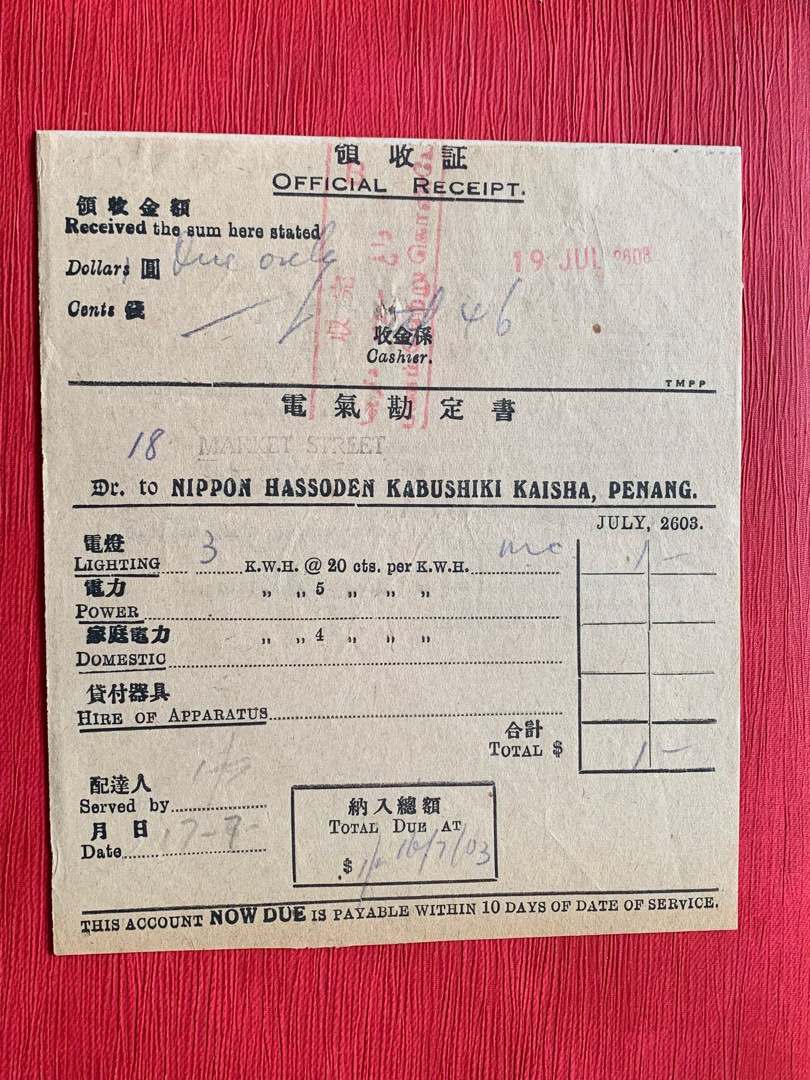 領收証
OFFICIAL RECEIPT.
領收金額
Received the sum here stated
Dollars 圓 One only
19 JUL 2603
Cents 仙 46
收金係
Cashier.
收完
TMPP
電氣勘定書
18 MARKET STREET
Dr. to NIPPON HASSODEN KABUSHIKI KAISHA, PENANG.
JULY, 2603.
電燈
LIGHTING 3 K.W.H. @ 20 cts. per K.W.H. mc 1 -
電力 „ „ 5 „ „ „
POWER
家庭電力 „ „ 4 „ „ „
DOMESTIC
貸付器具
HIRE OF APPARATUS
合計
TOTAL $ 1 -
配達人
Served by
月日
Date 17-7-
納入總額
TOTAL DUE AT
$ 1/- 16/7/03
THIS ACCOUNT NOW DUE IS PAYABLE WITHIN 10 DAYS OF DATE OF SERVICE.